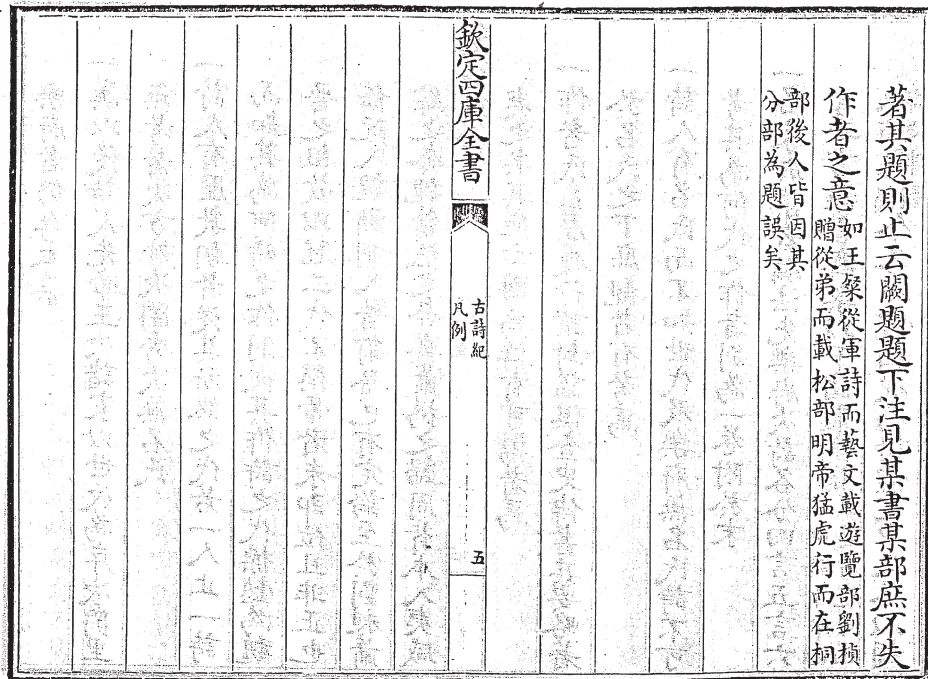 著其題則止云闕題題下注見某書某部庶不失
作者之意
如王粲從軍詩而藝文載遊覽部劉楨
贈從弟而載松部明帝猛虎行而在桐
部後人皆因其
分部為題誤矣
欽定四庫全書
古詩紀
凡例
五